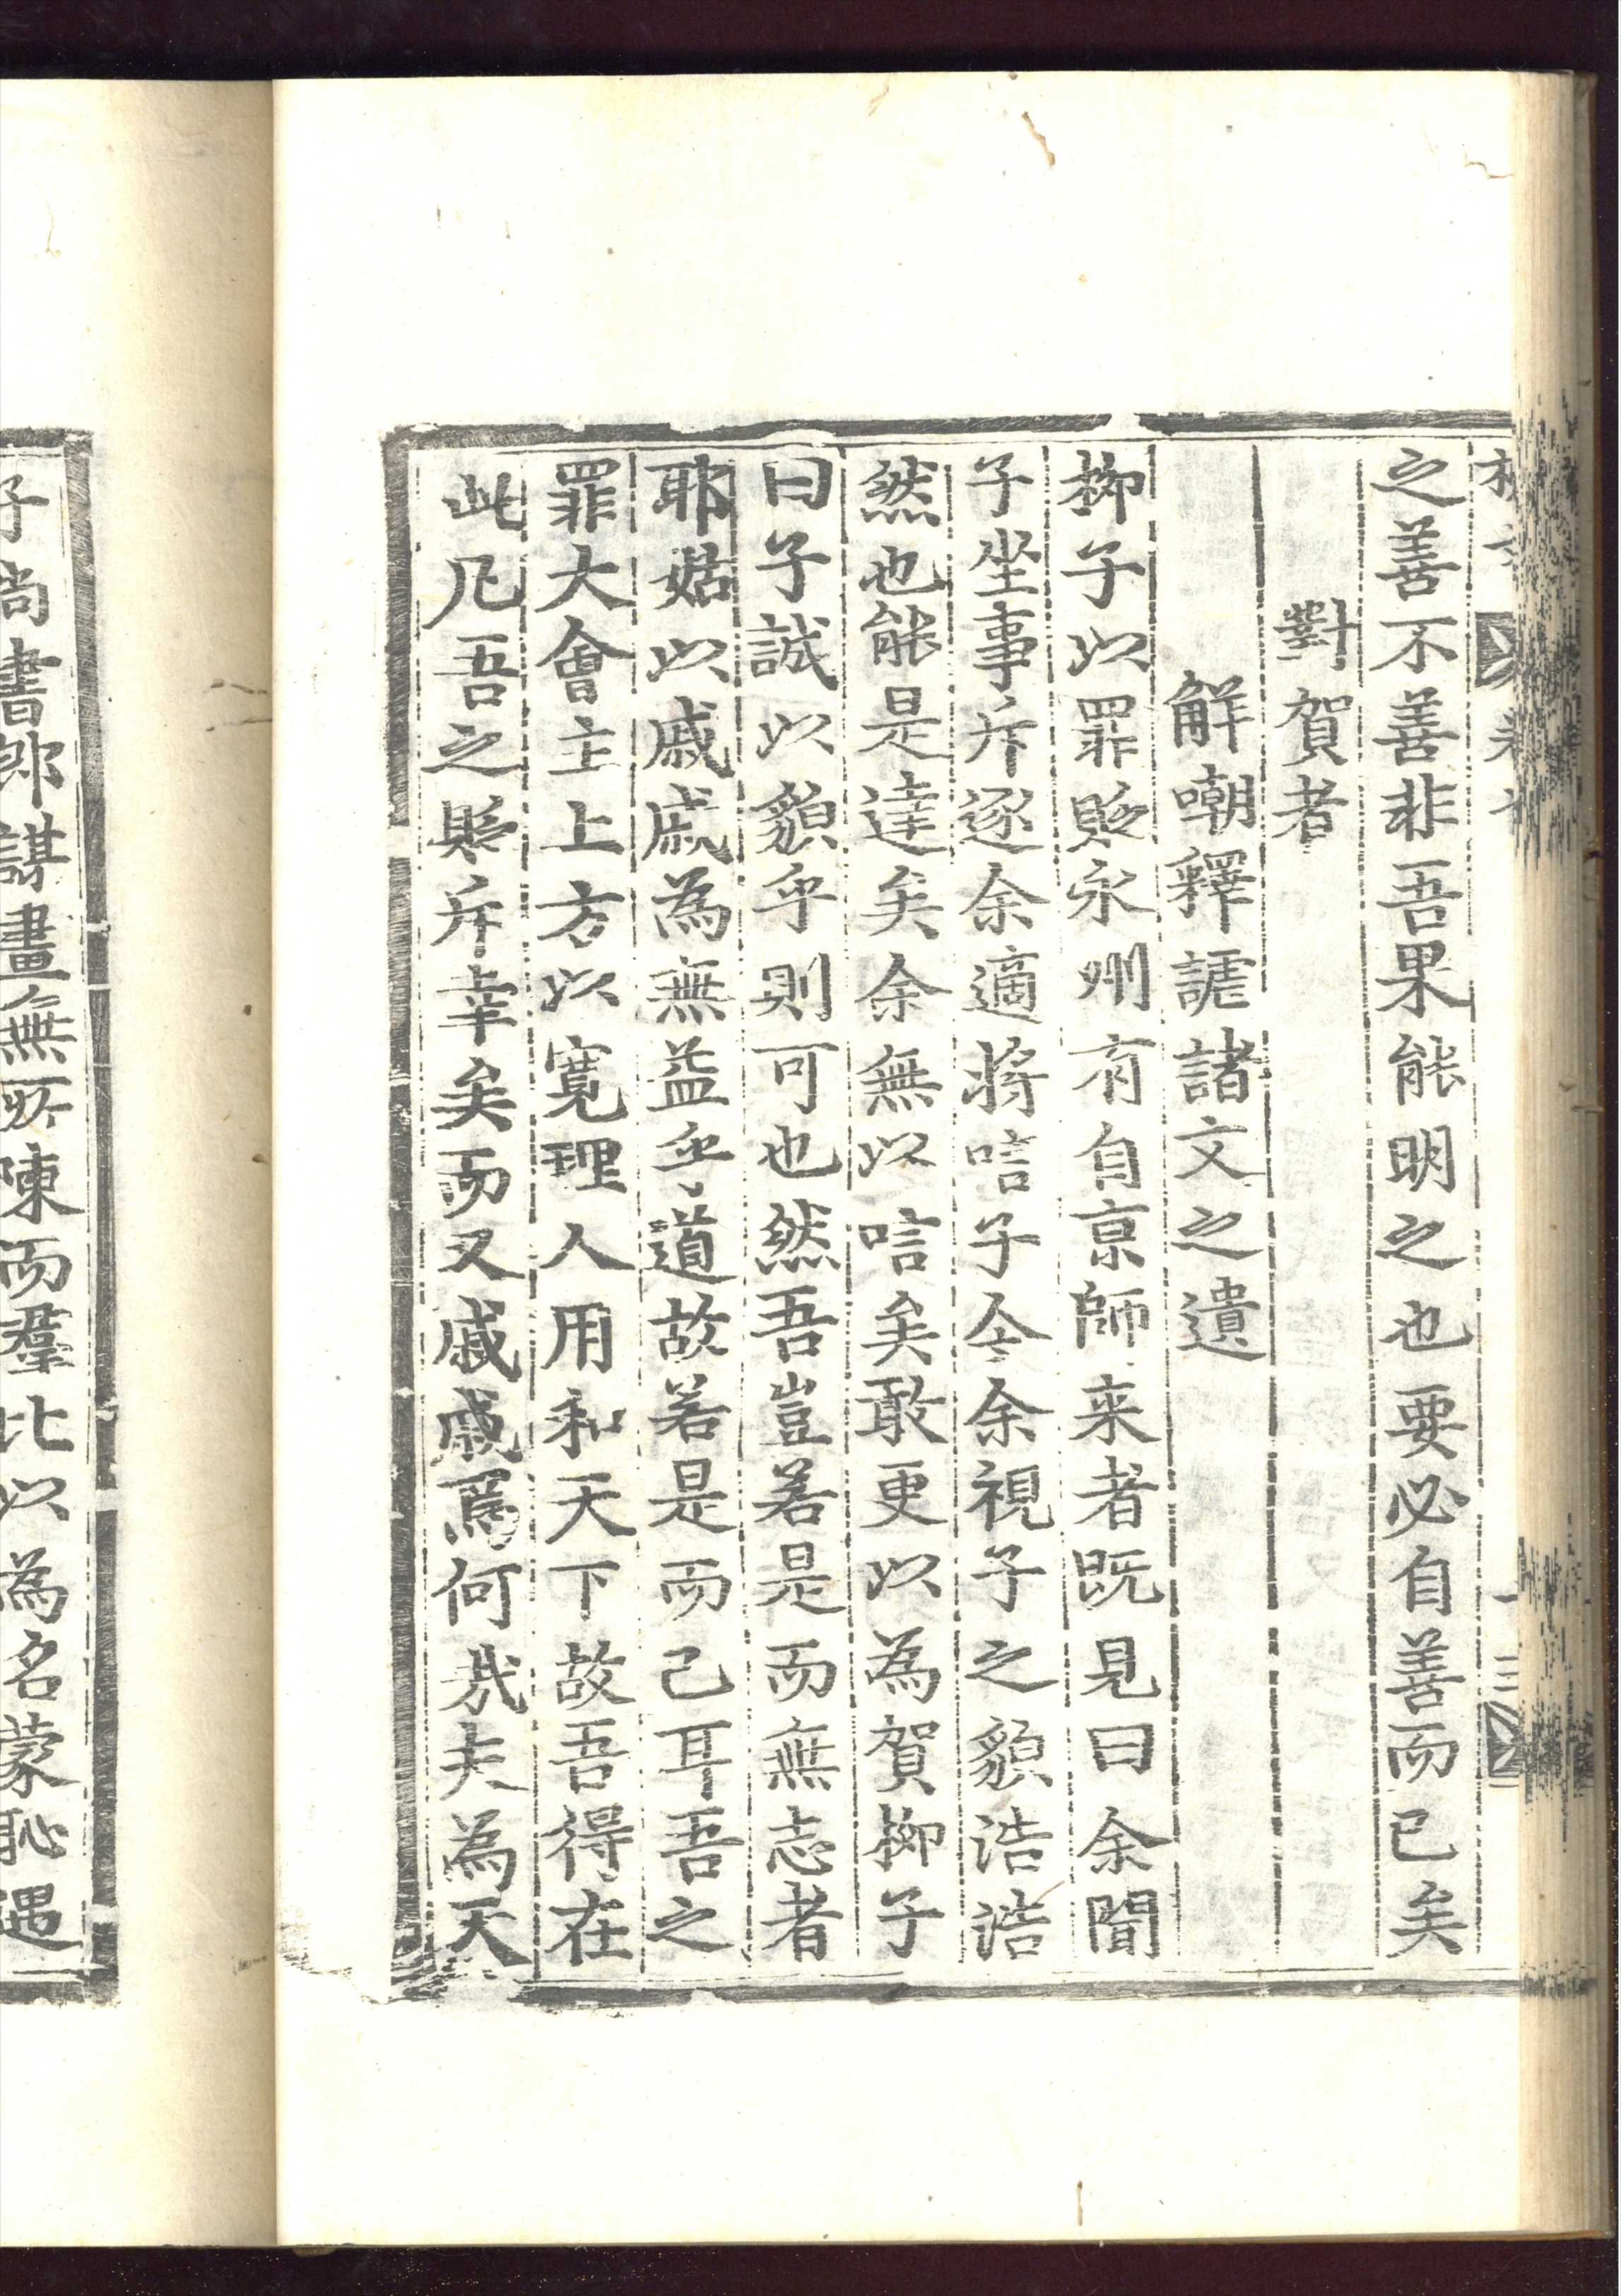 之善不善非吾果能明之也要必自善而已矣
對賀者
解嘲釋謔諸文之遺
柳子以罪貶永州有自京師来者既見曰余聞
子坐事斥逐余適將唁子今余視子之貌浩浩
然也能是達矣余無以唁矣敢更以為賀柳子
曰子誠以貌乎則可也然吾豈若是而無志者
耶姑以戚戚為無益乎道故若是而已耳吾之
罪大會主上方以寛理人用和天下故吾得在
此凡吾之貶斥幸矣而又戚戚焉何哉夫為天
子尚書郎謀畫無所陳而羣比以為名蒙恥遇